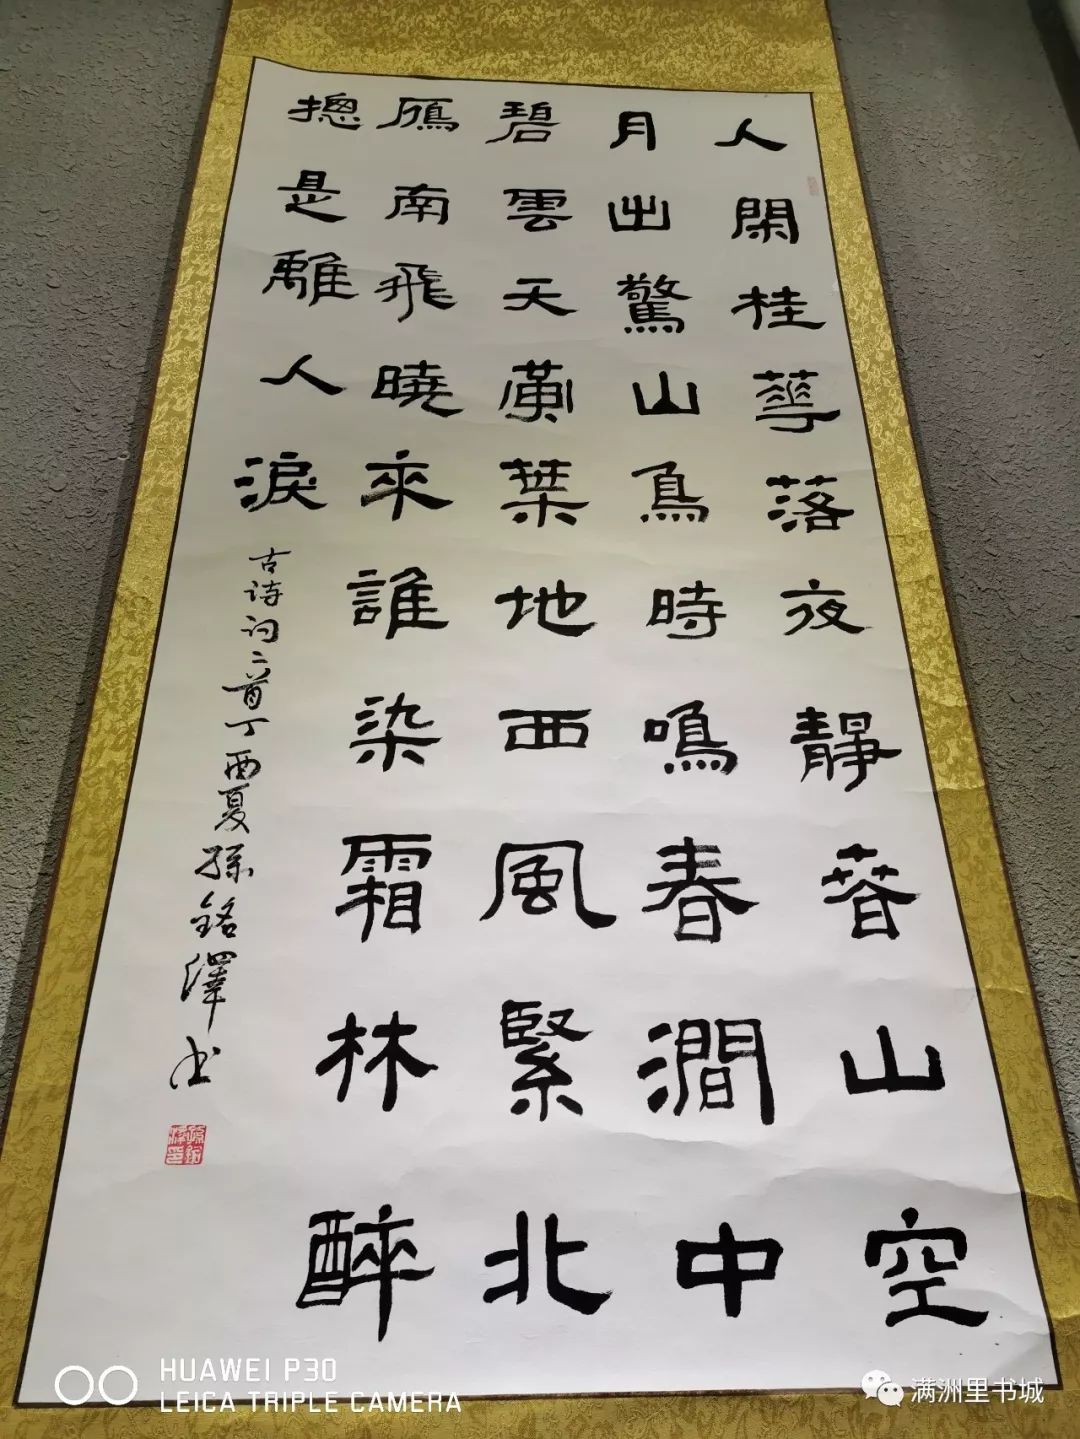 人閑桂華落夜靜春山空
月出驚山鳥時鳴春澗中
碧雲天黃葉地西風緊北
鴈南飛曉來誰染霜林醉
摠是離人淚
古诗词二首丁酉夏孫銘澤书
HUAWEI P30
LEICA TRIPLE CAMERA
满洲里书城